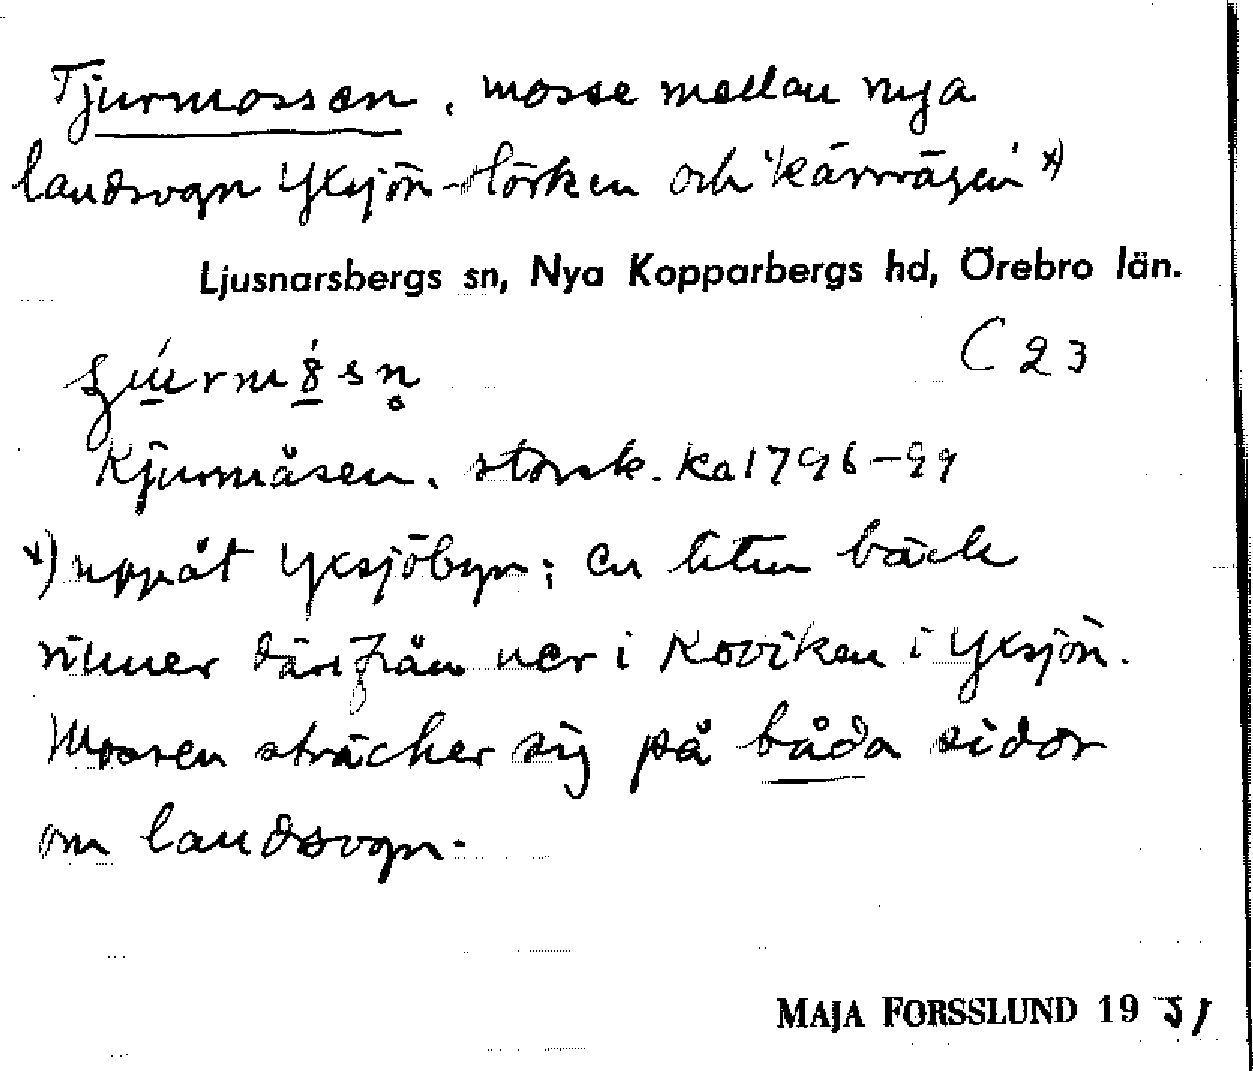 Tjurmossen, mosse mellan nya
landsvgn Yxsjön-Hörken och 'kärrvägen' x)
Ljusnarsbergs sn, Nya Kopparbergs hd, Örebro län.
C 23
Kjurmåsen. storsk. ka 1796-99
x) uppåt Yxsjöbyn; en liten bäck
rinner därifrån ner i Koviken i Yxsjön.
Mossen sträcker sig på båda sidor
om landsvgn.
MAJA FORSSLUND 19 31